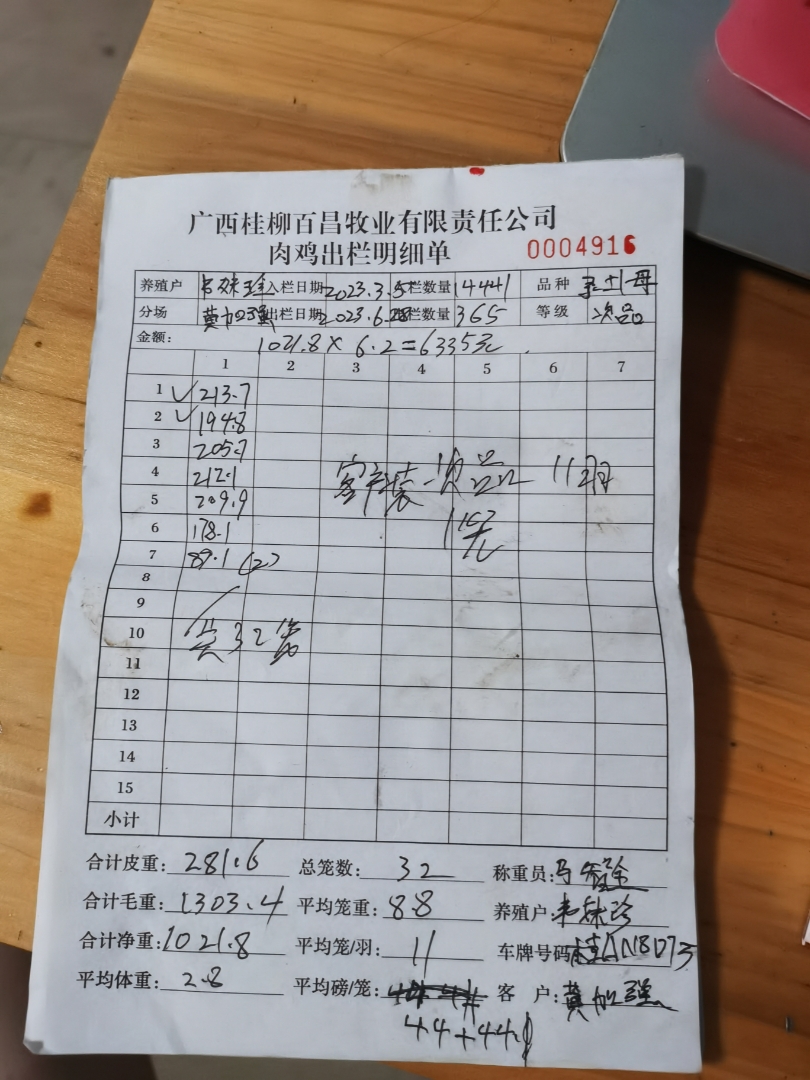 广西桂柳百昌牧业有限责任公司
肉鸡出栏明细单 0004916
养殖户 入栏日期 2023.3.5 栏数量 14441 品种 土1母
分场 黄加强 出栏日期 2023.6.28 栏数量 365 等级 次品
金额: 1021.8 × 6.2 = 6335元
1 2 3 4 5 6 7
1 ✓ 213.7
2 ✓ 194.8
3 205.7
4 212.1 客户装次品 11羽
5 209.9
6 178.1
7 89.1 (2)
8
9
10 共32笼
11
12
13
14
15
小计
合计皮重: 281.6 总笼数: 32 称重员:
合计毛重: 1303.4 平均笼重: 88 养殖户: 韦妹珍
合计净重: 1021.8 平均笼/羽: 11 车牌号码 桂AN8073
平均体重: 2.8 平均磅/笼: 客 户: 黄加强
44+44.1